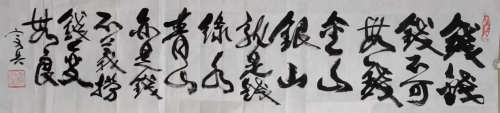 錢錢
錢不可
無錢
金山
銀山
就是錢
綠水
青山
亦是錢
不義撈
錢變
無良